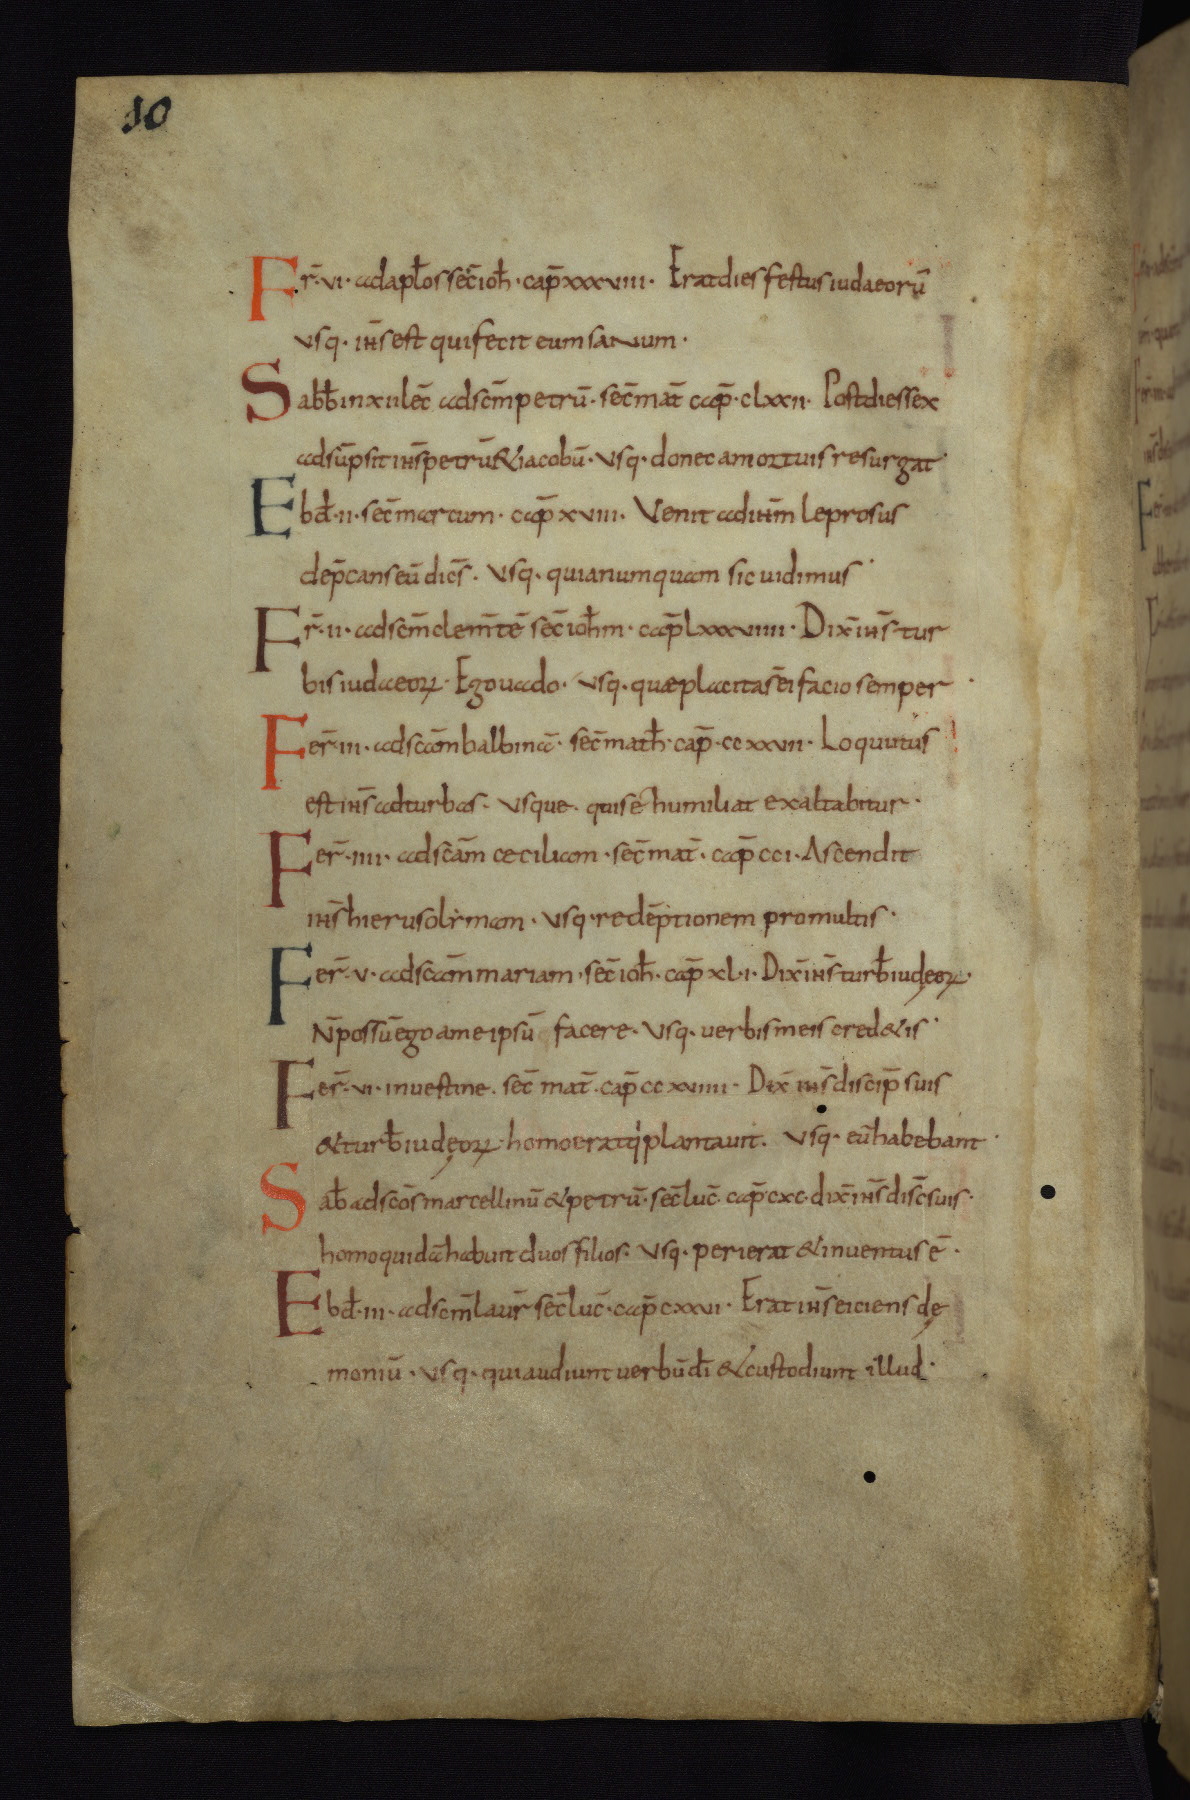 10
Fr̄·vi· ad apl̄os sec̄ ioh̄· cap̄ xxxviii· Erat dies festus iudaeorū
vsq· ih̄s est qui fecit eum sanum·
Sabb̄ in xii lec̄ ad sc̄m petrū· sec̄ mat̄ cap̄·clxxii· Post dies sex
adsūpsit ih̄s petrū & iacobū· vsq· donec a mortuis resurgat·
Ebd̄·ii· sec̄ marcum· cap̄ xviii· Venit ad ih̄m leprosus
dep̄cans eū dic̄s· vsq· quia numquam sic uidimus·
Fr̄·ii· ad sc̄m clem̄tē sec̄ ioh̄m· cap̄ lxxxviiii· Dix̄ ih̄s tur
bis iudaeoꝝ· Ego uado· vsq· quae placita s̄ ei facio semper·
Fer̄·iii· ad scām balbinā· sec̄ math̄· cap̄·ccxxvii· Loquutus
est ih̄s ad turbas· vsque· qui sē humiliat exaltabitur·
Fer̄·iiii· ad scām ceciliam· sec̄ mat̄· cap̄ cci· Ascendit
ih̄s hierusolimam· vsq· redēptionem pro multis·
Fer̄·v· ad scām mariam· sec̄ ioh̄· cap̄ xl·i· Dix̄ ih̄s turb̄ iudęoꝝ·
N̄ possū ego a me ipsū facere· vsq· verbis meis cred&is·
Fer̄·vi· in uestine· sec̄ mat̄· cap̄ ccxviiii· Dix̄ ih̄s discip̄ suis
& turb̄ iudęoꝝ· homo erat q̇ plantauit· vsq· eū habebant·
Sab̄ ad scōs marcellinū & petrū· sec̄ luc̄· cap̄ cxc· dix̄ ih̄s disc̄ suis·
homo quidā habuit duos filios· vsq· perierat & inuentus ē·
Ebd̄·iii· ad scm̄ laur̄ sec̄ luc̄· cap̄ cxxvi· Erat ih̄s eiciens dę
moniū· vsq· qui audiunt uerbū dī & custodiunt illud·